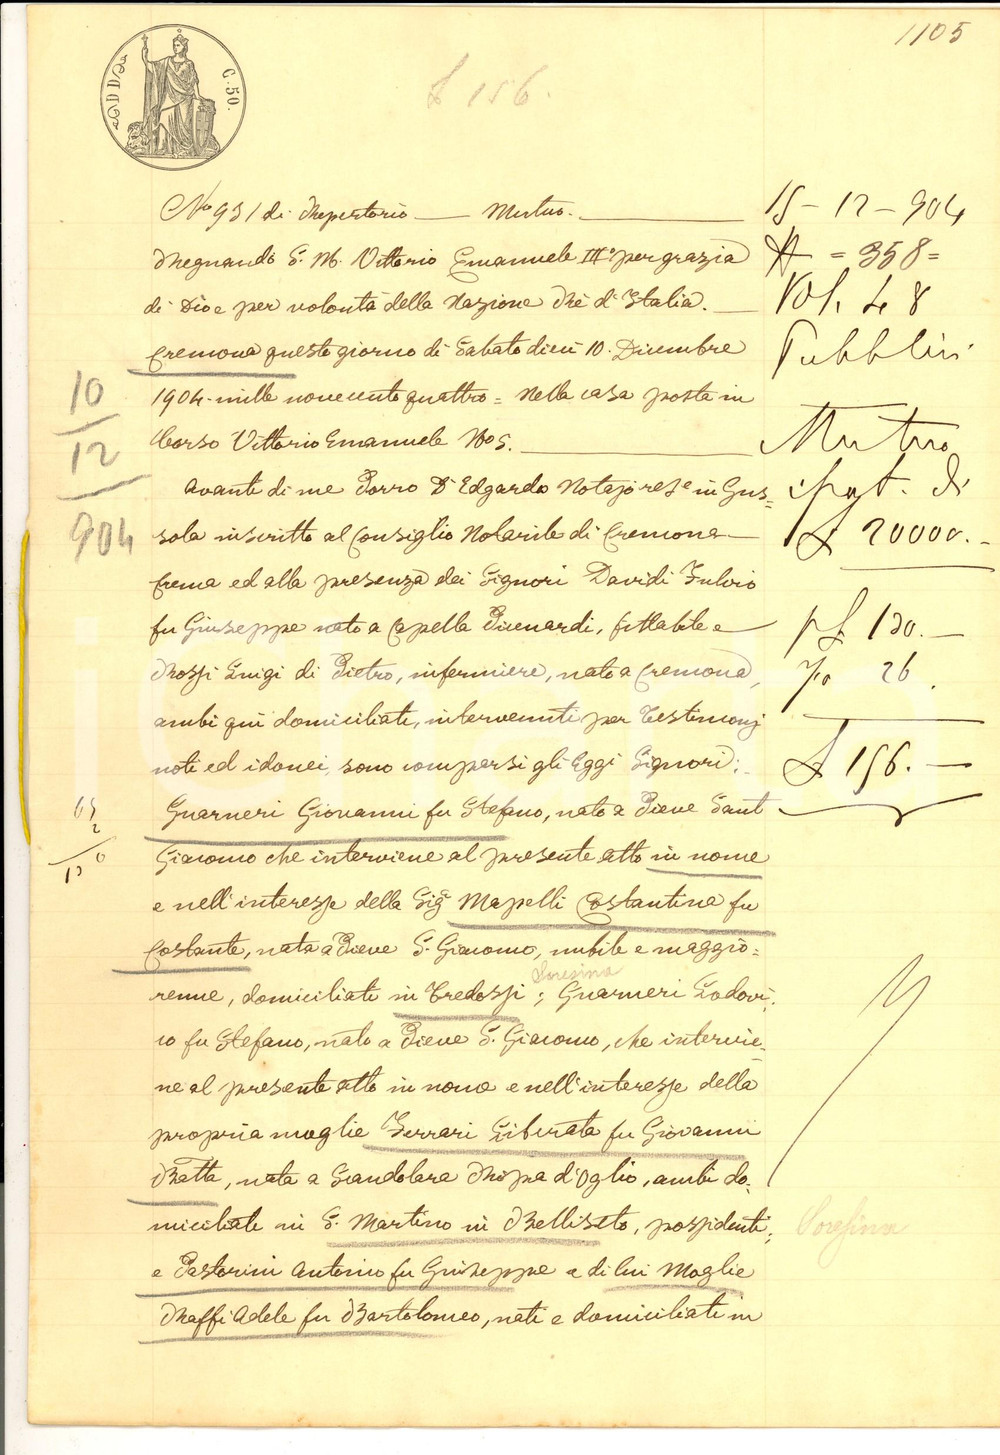 1105
C. 50.
£ 156.
No 931 di Repertorio — Mutuo. —
Regnando S. M. Vittorio Emanuele III° per grazia
di Dio e per volontà della Nazione Rè d'Italia. —
Cremona questo giorno di Sabato dieci 10. Dicembre
1904 - mille novecento quattro = Nella casa posta in
Corso Vittorio Emanuele No 5. —
Avanti di me Porro Dr Edgardo Notajo res.e in Gus=
sola inscritto al Consiglio Notarile di Cremona —
Crema ed alla presenza dei Signori Davidi Fulvio
fu Giuseppe nato a Capella Picenardi, fittabile e —
Rossi Luigi di Pietro, infermiere, nato a Cremona,
ambi qui domiciliati, intervenuti per Testimonj
noti ed idonei, sono compersi gli Eggi Signori: -
Guarneri Giovanni fu Stefano, nato a Pieve Sant
Giacomo che interviene al presente atto in nome
e nell'interesse della Sig.a Mapelli Costantina fu
Costante, nata a Pieve S. Giacomo, nubile e maggio=
Soresina
renne, domiciliati in Credossi; Guarneri Lodovi:
co fu Stefano, nato a Pieve S. Giacomo, che intervie=
ne al presente atto in nome e nell'interesse della
propria moglie Ferrari Liberata fu Giovanni
Batta, nata a Gandolara Ripa d'Oglio, ambi do:
miciliati in S. Martino in Belliseto, possidenti;
e Pastorini Antonio fu Giuseppe e di lui Moglie
Raffi Adele fu Bartolomeo, nati e domiciliati in
10
12
904
15 - 12 - 904
= 358 =
Vol. 48
Pubblici
Mutuo
ipot. di
£ 20000. -
£ 130. —
26.
£ 156. —
Soresina